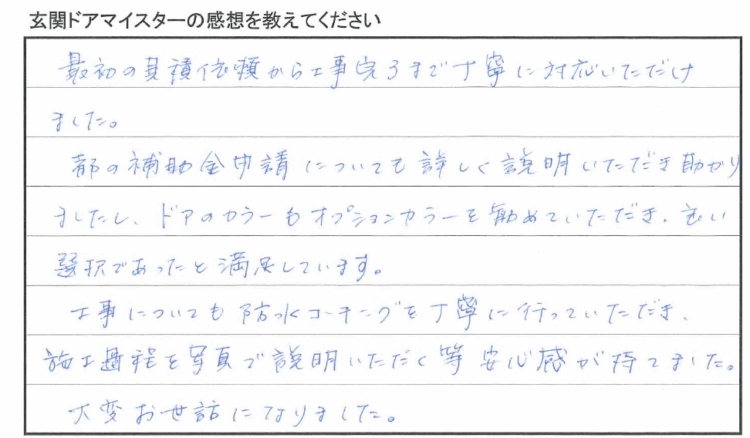 玄関ドアマイスターの感想を教えてください
最初の見積依頼から工事完了まで丁寧に対応いただけ
ました。
都の補助金申請についても詳しく説明いただき助かり
ましたし、ドアのカラーもオプションカラーを勧めていただき、良い
選択であったと満足しています。
工事についても防水コーチングを丁寧に行っていただき、
施工過程を写真で説明いただく等安心感が持てました。
大変お世話になりました。